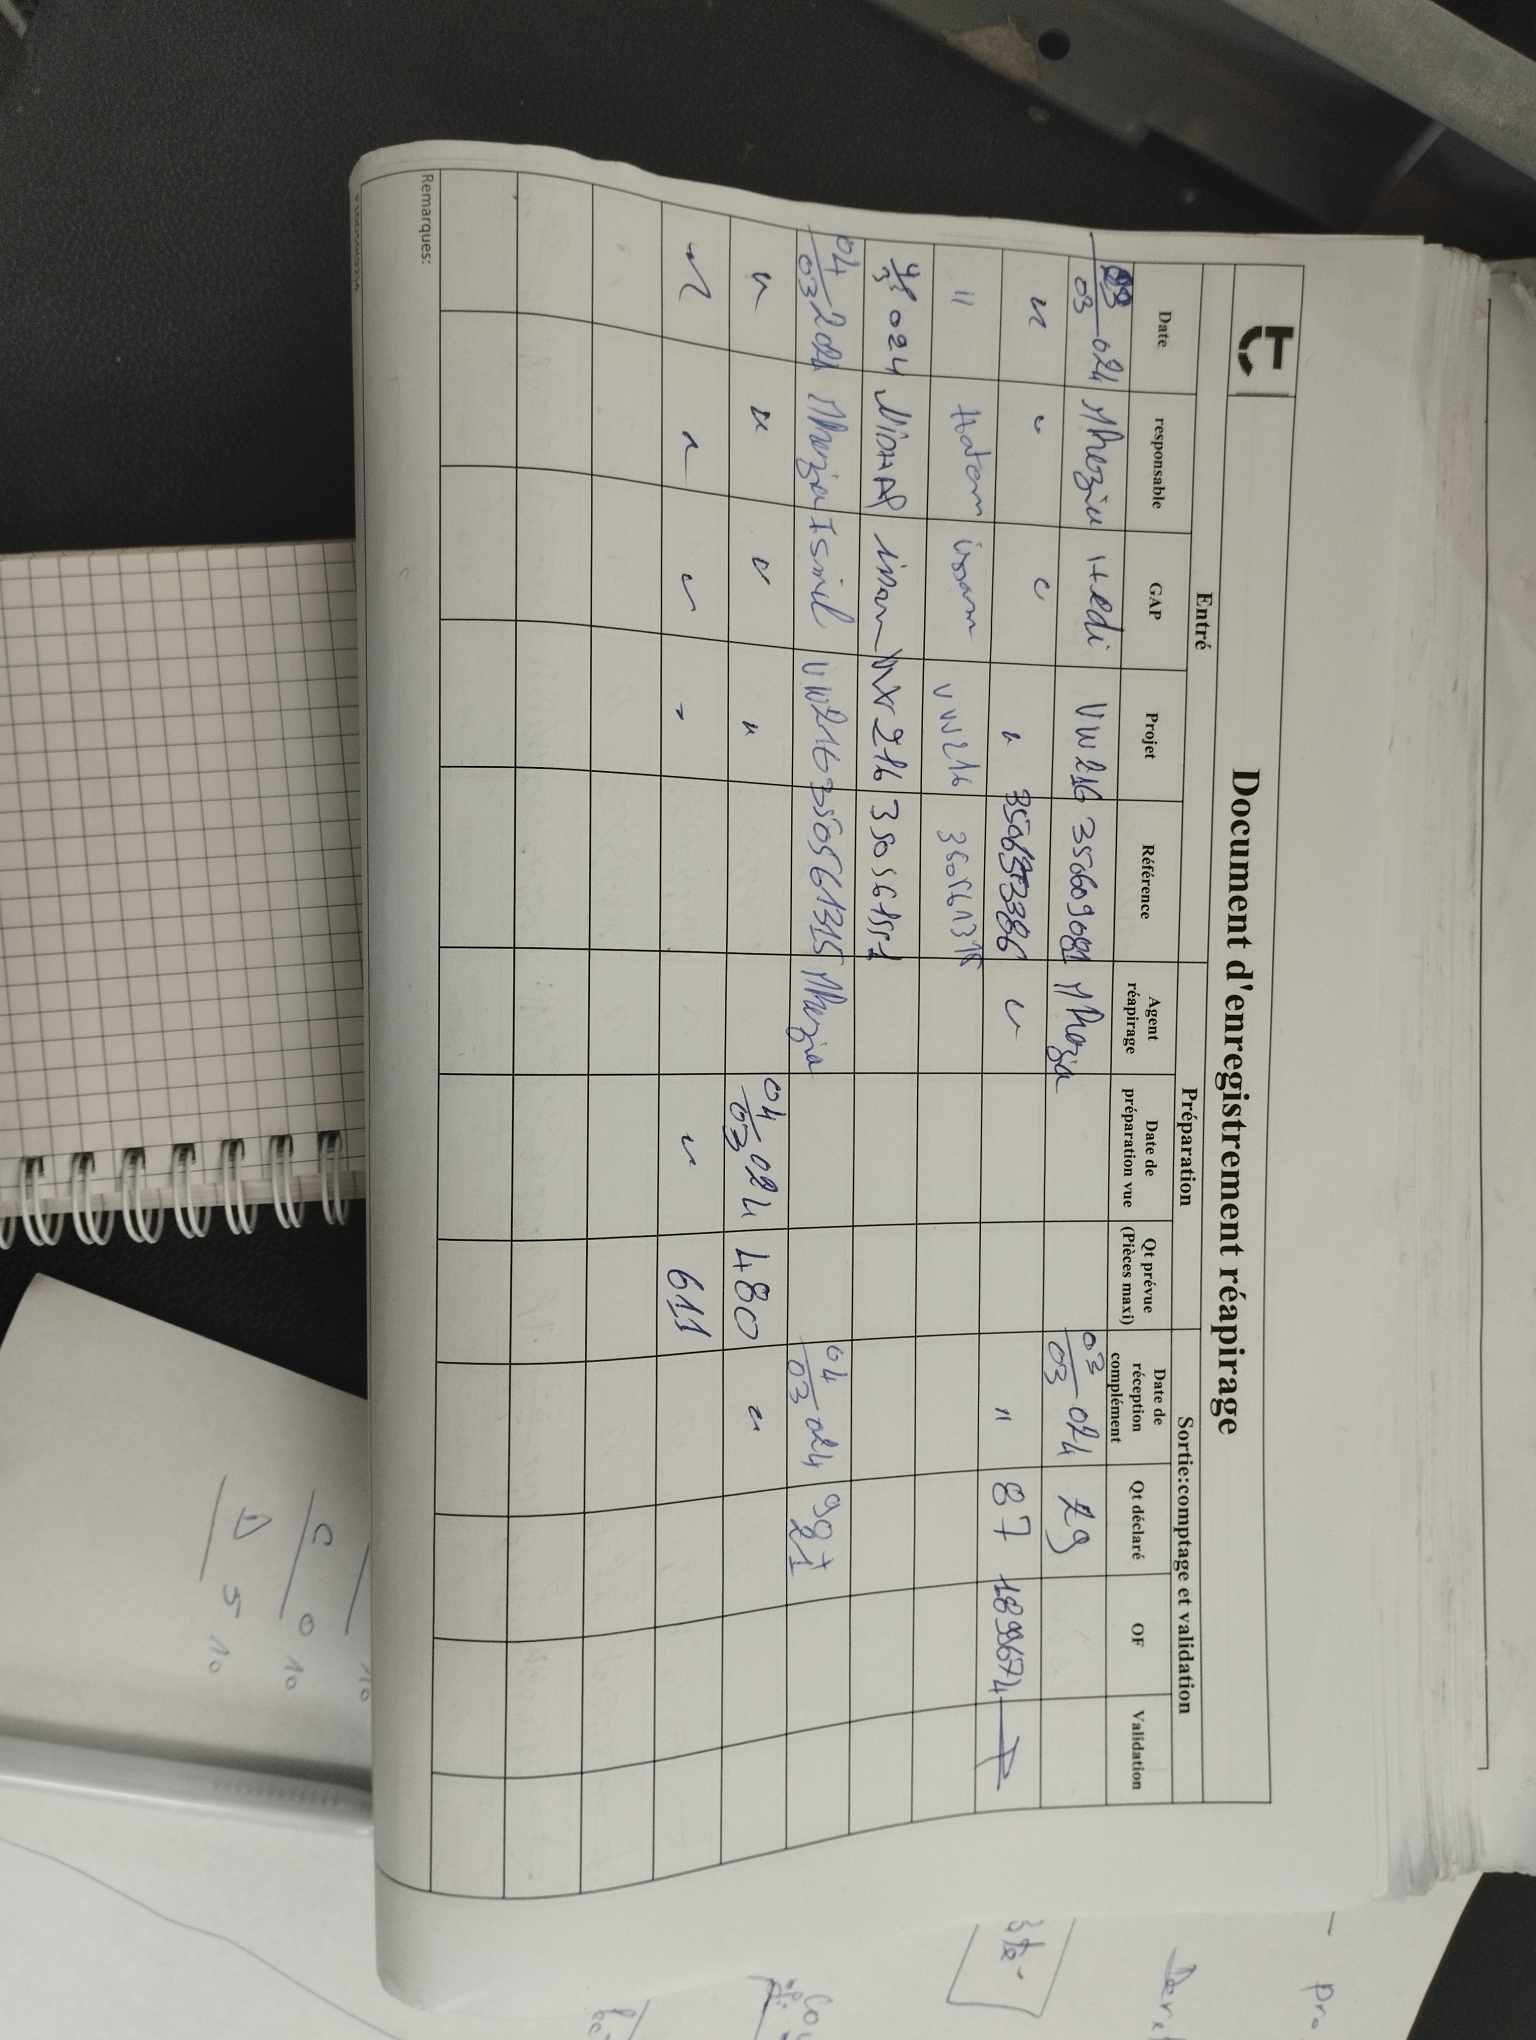 Document d'enregistrement réapirage
Entré Préparation Sortie:comptage et validation
Date responsable GAP Projet Référence Agent réapirage Date de préparation vue Qt prévue (Pièces maxi) Date de réception complément Qt déclaré OF Validation
03/03 024 Hedi VW216 350609081 03/03 024 29
" " " " " " 87 1899674
" Hatem issam VW216 350561315
024 issam VW216 350561551
04/03 2024 Ismel VW216 350561315 04/03 024 98+21
" " " " 04/03 024 480 "
" " " " " 611
Remarques:
pro
C 0 10
D 5 10